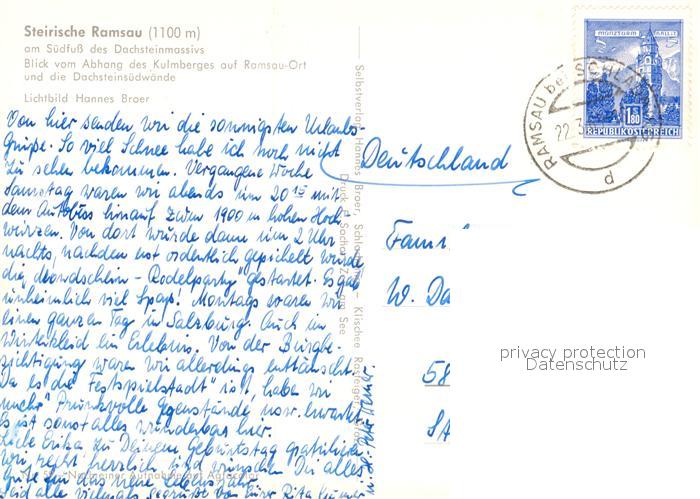 Steirische Ramsau (1100 m)
am Südfuß des Dachsteinmassivs
Blick vom Abhang des Kulmberges auf Ramsau-Ort
und die Dachsteinsüdwände
Lichtbild Hannes Broer
Von hier senden wir die sonnigsten Urlaubs-
Grüße. So viel Schnee habe ich noch nicht
zu sehen bekommen. Vergangene Woche
Samstag waren wir abends um 20 15 mit
dem Autobus hinauf zum 1900 m hohen Hoch-
wurzen. Von dort wurde dann um 2 Uhr
nachts, nachdem erst ordentlich gepichelt wurde
die "Mondschein-Rodelparty" gestartet. Es gab
unheimlich viel Spaß! Montags waren wir
einen ganzen Tag in Salzburg. Auch im
Winterkleid ein Erlebnis. Von der Burgbe-
sichtigung waren wir allerdings enttäuscht.
Da es die "Festspielstadt" ist, haben wir
mehr Prunkvolle Gegenstände usw. erwartet.
Es ist sonst alles wunderbar hier.
Liebe Erika zu Deinem Geburtstag gratulieren
wir recht herzlich und wünschen Dir alles
Gute für das neue Lebensjahr.
Seid alle vielmals gegrüßt von Eurer Rita
Selbstverlag Hannes Broer, Schladming – Klischee
Druck
Zell am See
MÜNZTURM
HALL
1.80
REPUBLIK ÖSTERREICH
RAMSAU bei SCHLA
22.3
d
Deutschland
Fam
W. Da
58
privacy protection
Datenschutz